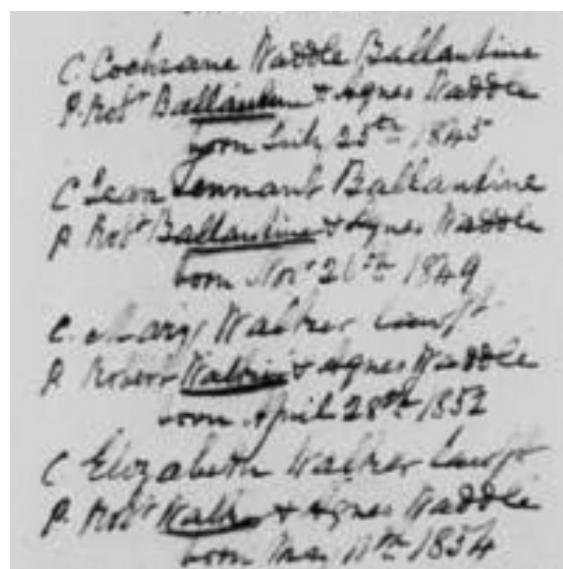 C. Cochrane Waddle Ballantine
P. Robt Ballantine & Agnes Waddle
born July 25th 1845
C Jean Tennant Ballantine
P. Robt Ballantine & Agnes Waddle
born Novr 26th 1849
C. Mary Walker
P. Robert Walker & Agnes Waddle
born April 28th 1852
C Elizabeth Walker
P. Robt Walker & Agnes Waddle
born May 11th 1854